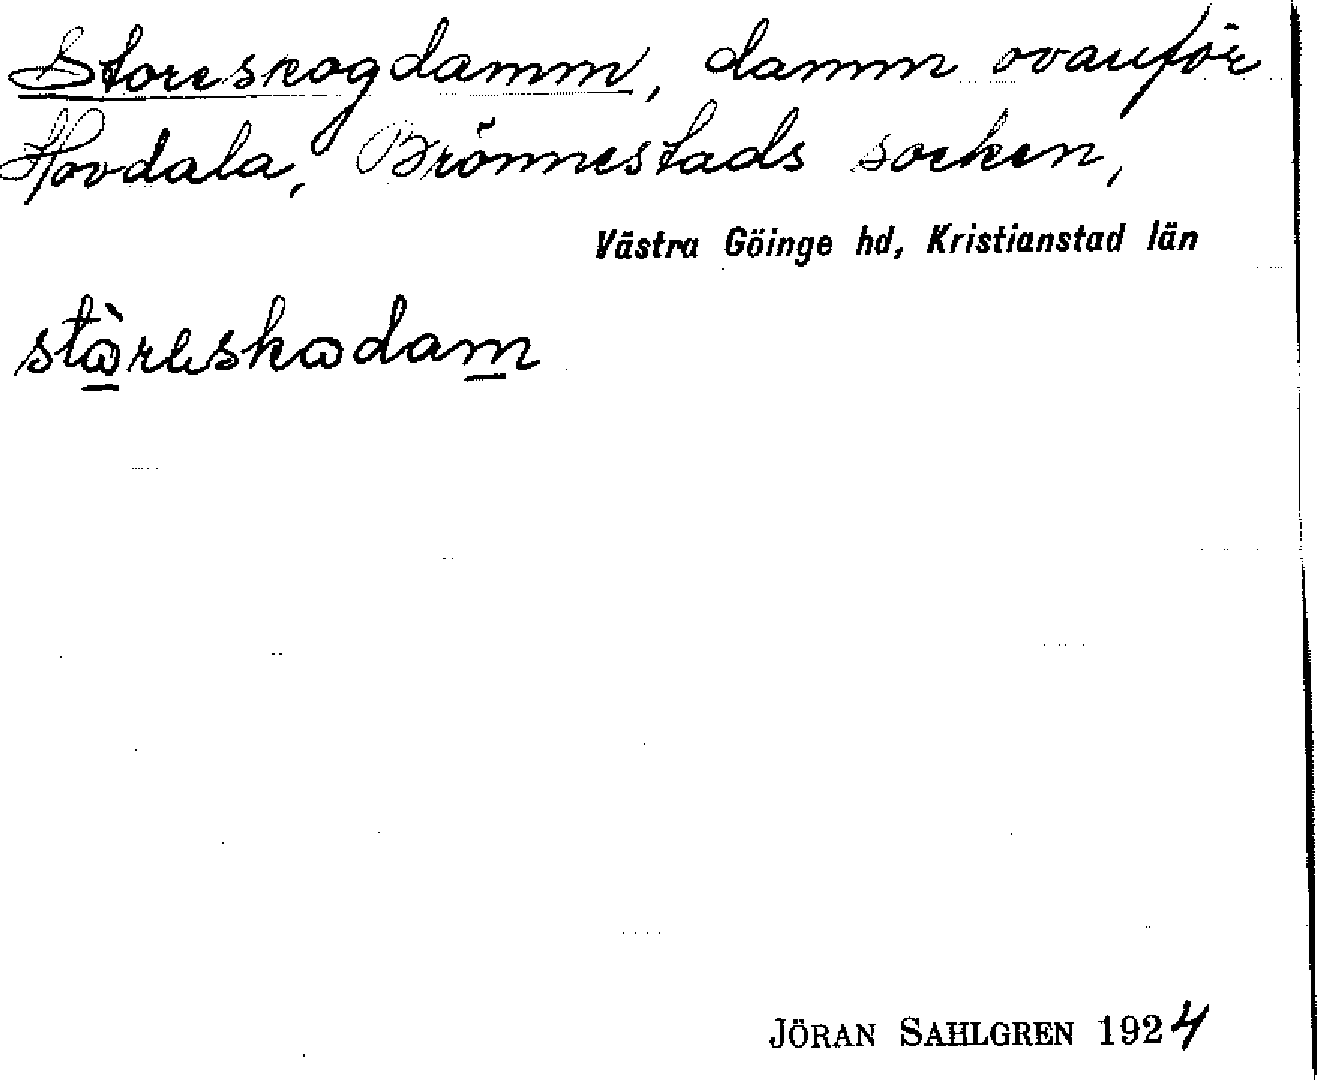 Storeskogdamm, damm ovanför
Hovdala, Brönnestads socken,
Västra Göinge hd, Kristianstad län
JÖRAN SAHLGREN 1924